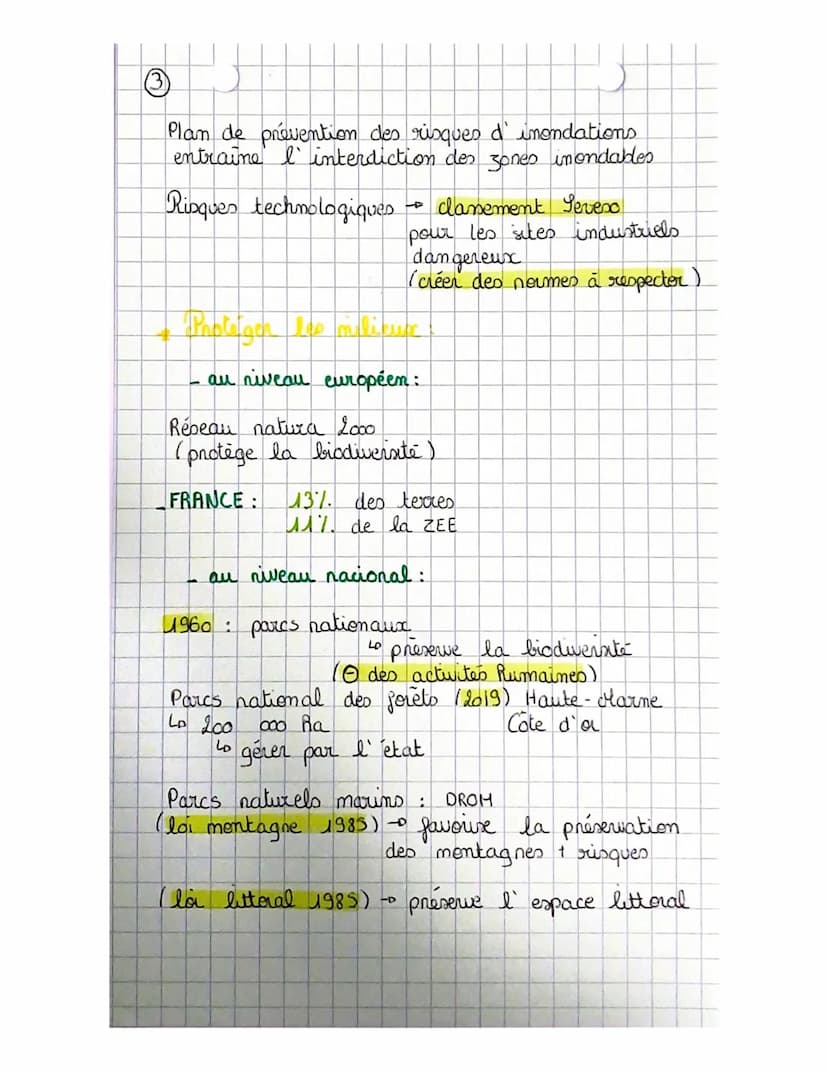 3
Plan de prévention des risques d'inondations
entraîne l'interdiction des zones inondables
Risques technologiques → classement Seveso
pour les sites industriels
dangereux
(créer des normes à respecter)
→ Protéger les milieux :
- au niveau européen :
Réseau natura 2000
(protège la biodiversité)
- FRANCE : 13% des terres
11% de la ZEE
- au niveau nacional :
1960 : parcs nationaux
↳ préserve la biodiversité
(⊖ des activités humaines)
Parcs national des forêts (2019) Haute-Marne
↳ 200 000 ha Côte d'or
↳ gérer par l'état
Parcs naturels marins : DROM
(loi montagne 1985) → favorise la préservation
des montagnes + risques
(loi littoral 1985) → préserve l'espace littoral